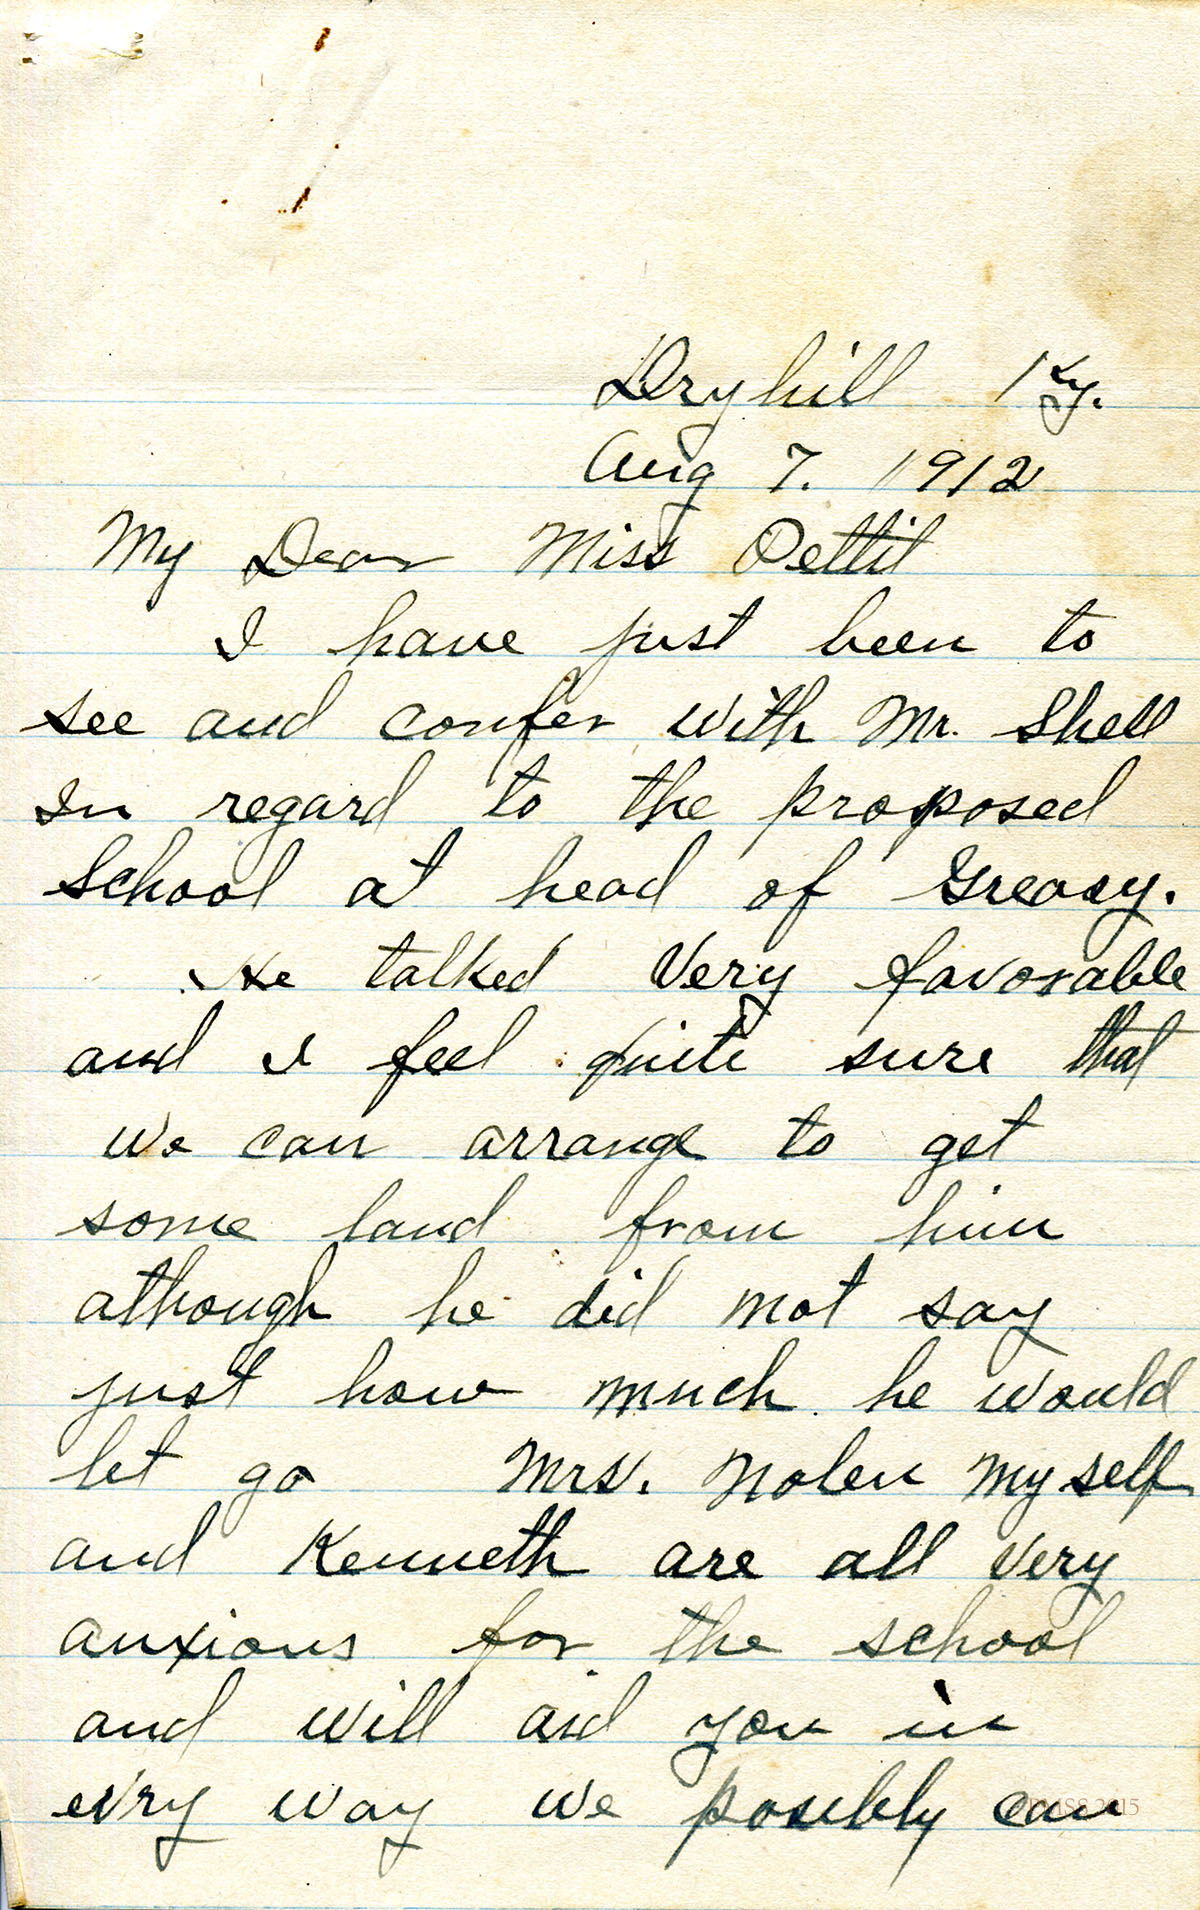 Dryhill Ky.
Aug 7. 1912
My Dear Miss Pettit
I have just been to
see and confer with Mr. Shell
In regard to the proposed
School at head of Greasy.
He talked Very favorable
and I feel quite sure that
we can arrange to get
some land from him
although he did not say
just how much he would
let go Mrs. Nolen Myself
and Kenneth are all very
anxious for the school
and will aid you in
evry way we possibly can
PMSS 2015